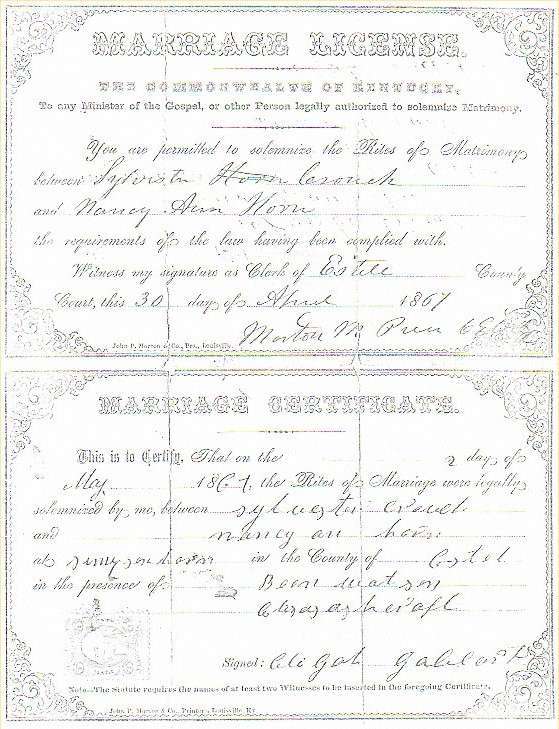 MARRIAGE LICENSE.
THE COMMONWEALTH OF KENTUCKY,
To any Minister of the Gospel, or other Person legally authorized to solemnize Matrimony.
You are permitted to solemnize the Rites of Matrimony
between Sylvister Horn Crouch
and Nancy Ann Horn
the requirements of the law having been complied with.
Witness my signature as Clerk of Estill County
Court, this 30 day of April 1867
Morton M
John P. Morton & Co., Prs., Louisville.
MARRIAGE CERTIFICATE.
This is to Certify, That on the 2 day of
May 1867, the Rites of Marriage were legally
solemnized by me, between sylvester crouch
and nancy an horn
at in the County of Estel
in the presence of Been watson
Signed:
Note.—The Statute requires the names of at least two Witnesses to be inserted in the foregoing Certificate.
John P. Morton & Co., Printers, Louisville, Ky.